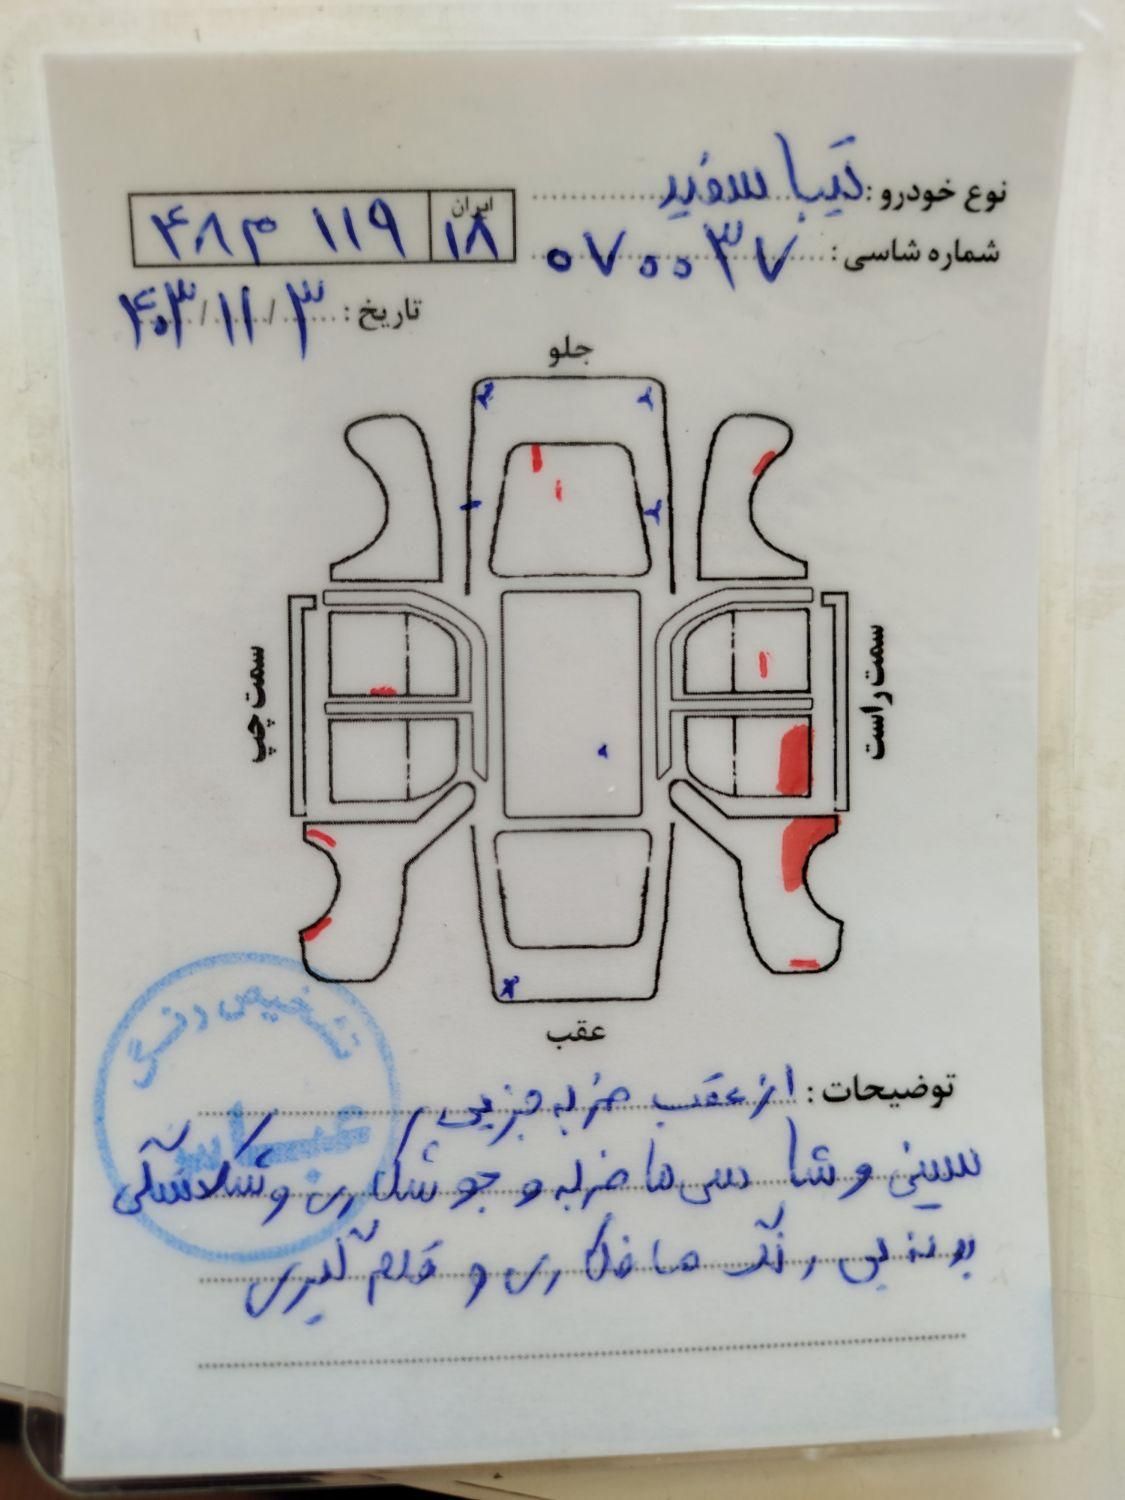 نوع خودرو : تیبا سفید
شماره شاسی : ۰۷۰۰۳۷
ایران
۴۸ م ۱۱۹ ۱۸
تاریخ : ۳ / ۱۱ / ۴۰۳
جلو
سمت چپ
سمت راست
عقب
توضیحات : از عقب ضربه جزیی
سینی و شاسی ها ضربه و جوشکاری و شکستگی
بدنه بی رنگ صافکاری و قلم گیری
تشخیص رنگ
عباس